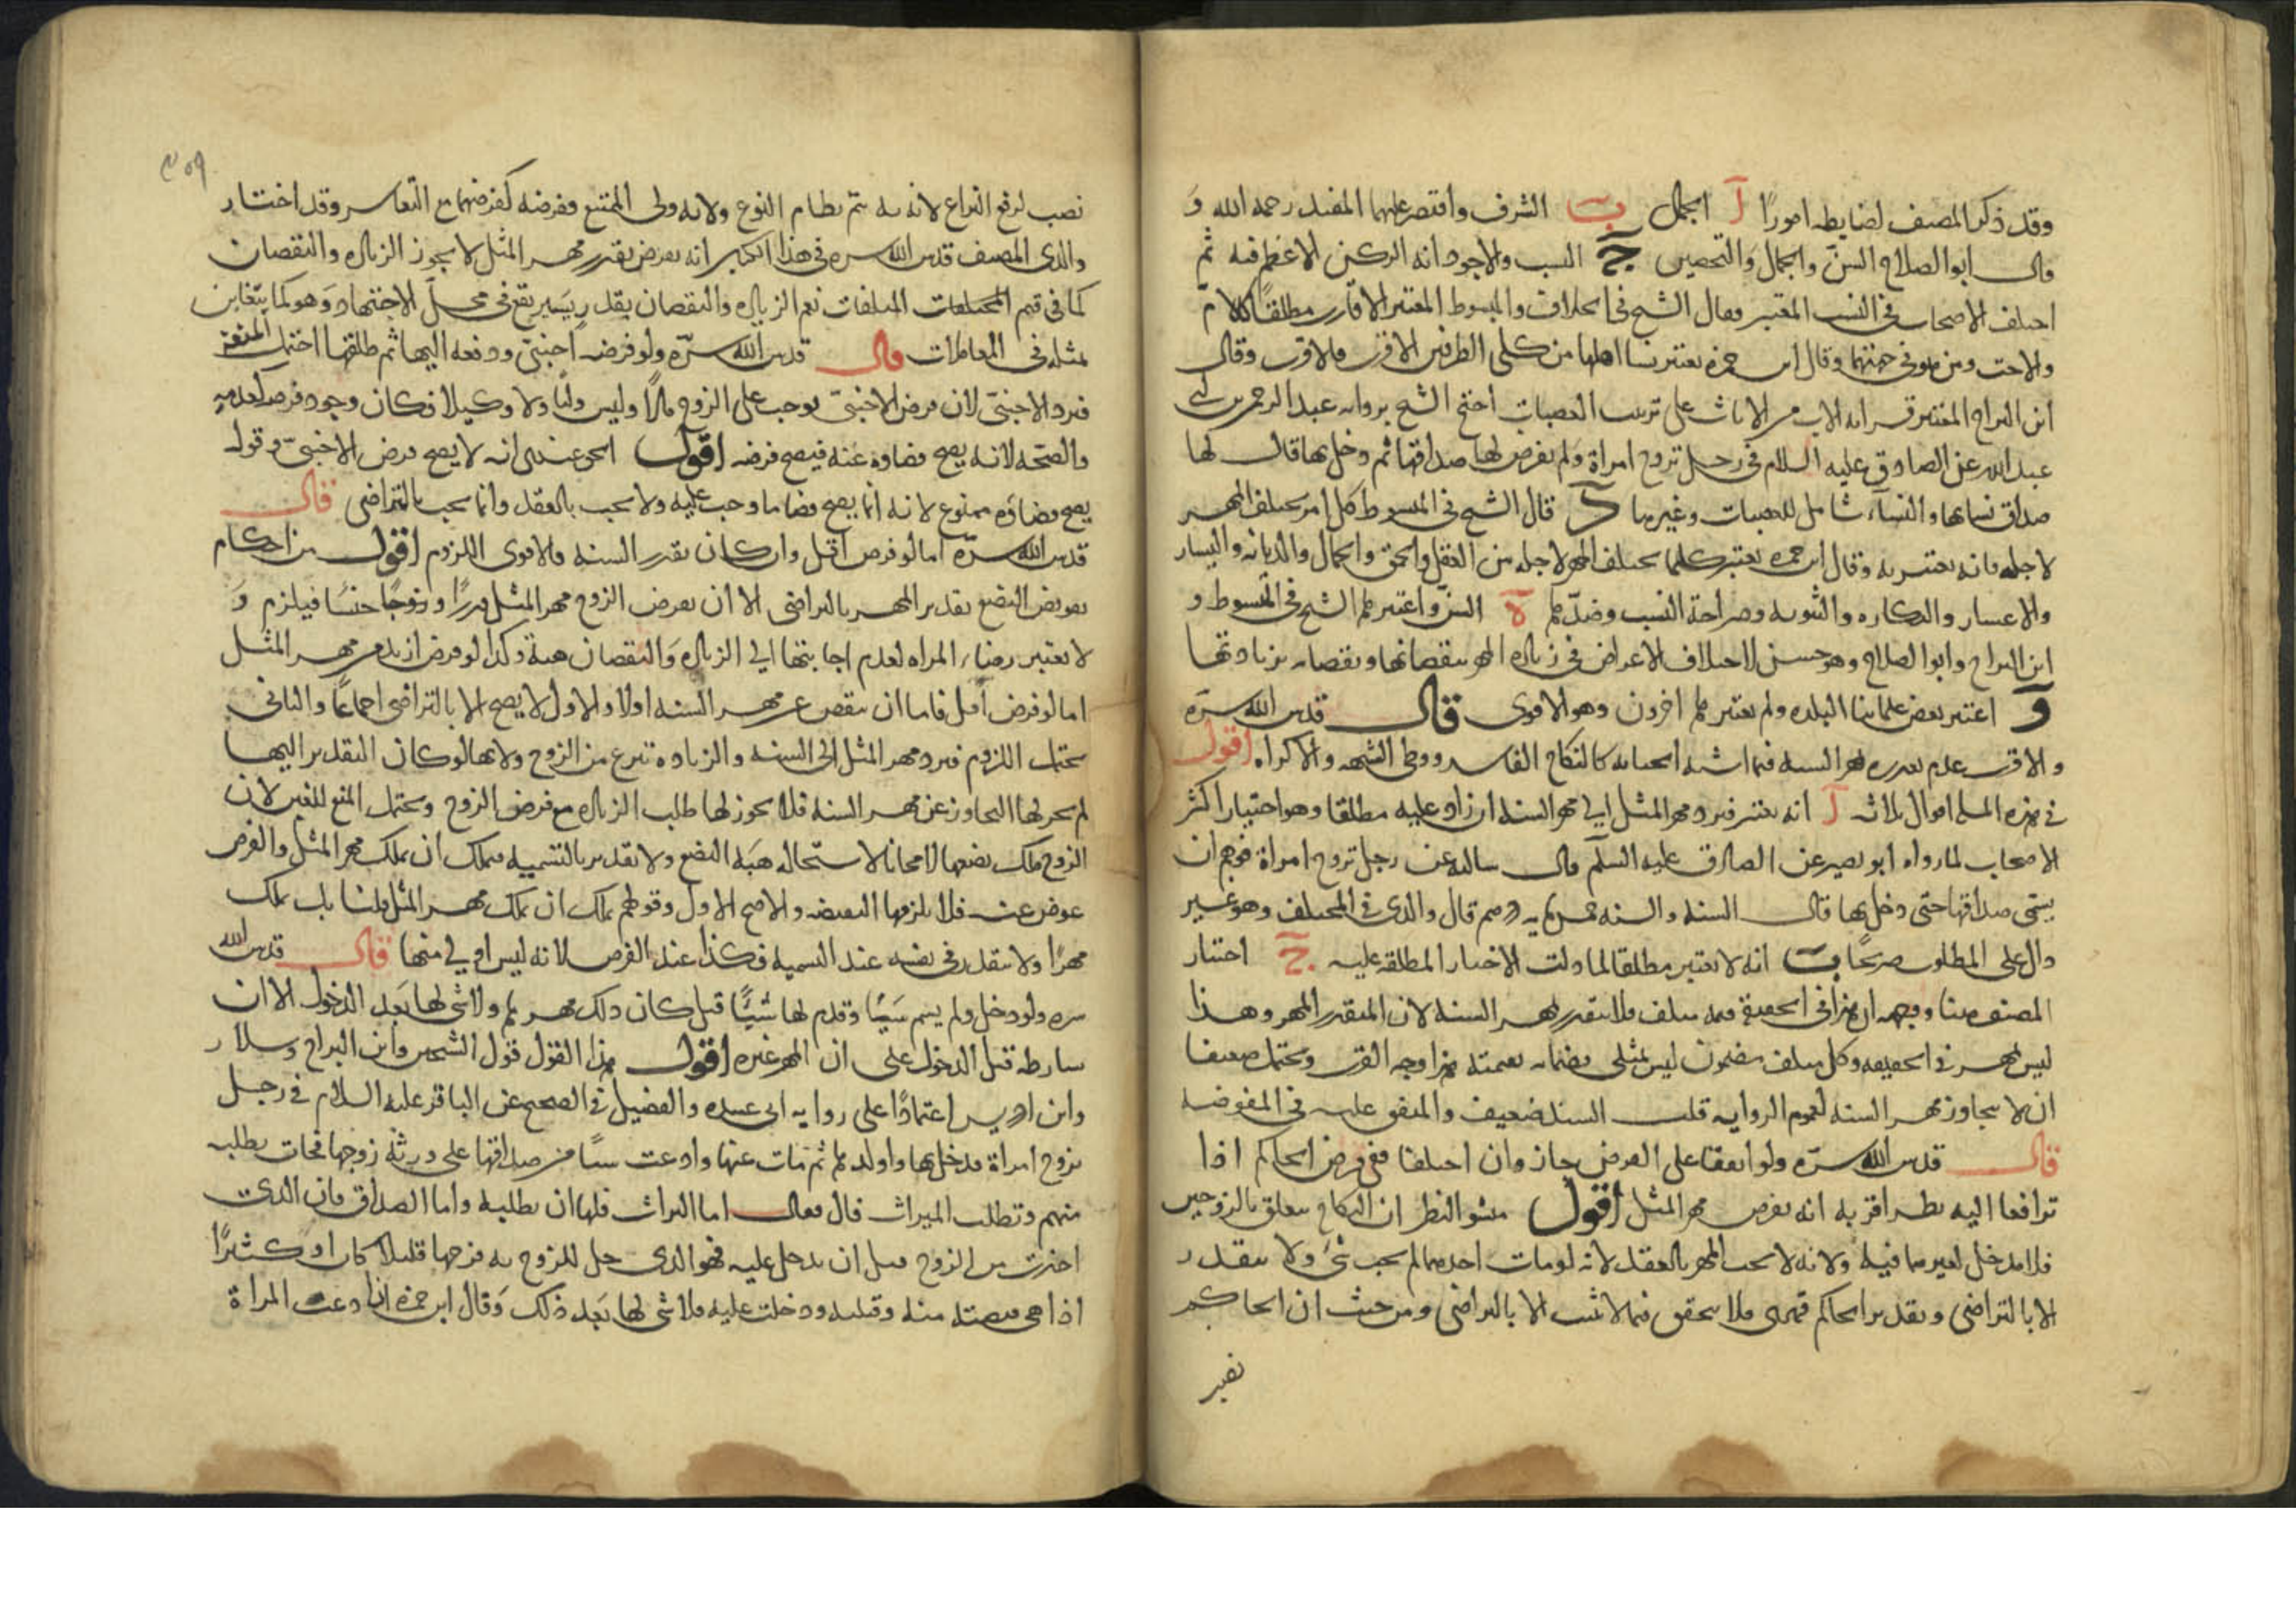 وقد ذكر المصنف لضابطه امورًا آ الجمال ب الشرف واقتصر عليهما المفيد رحمه الله و
قال ابو الصلاح السنّ والجمال والتحصين ج النسب والاجود انه الركن الاعظم فيه ثم
اختلف الاصحاب في النسب المعتبر فقال الشيخ في الخلاف والمبسوط المعتبر الاقارب مطلقا كالام
والاخت ومن هو في جهتهما وقال ابن حمزة يعتبر نسا اهلها من كلى الطرفين الاقرب فالاقرب وقال
ابن البراج المعتبر قرابه الاب من الاناث على ترتيب العصبات احتج الشيخ بروايه عبد الرحمن بن ابي
عبد الله عن الصادق عليه السلام في رجل تزوج امراة ولم يفرض لها صداقها ثم دخل بها قال لها
صداق نسائها والنسآء شامل للعصبات وغيرها د قال الشيخ في المبسوط كل امر يختلف المهر
لاجله فانه يعتبر به وقال ابن حمزه يعتبر كلما يختلف المهر لاجله من العقل والحمق والجمال والديانه واليسار
والاعسار والبكاره والثيوبه وصراحة النسب وضدّها ه السنّ واعتبرها الشيخ في المبسوط و
ابن البراج وابو الصلاح وهو حسن لاختلاف الاعراض في زياده المهر بنقصانها ونقصانه بزيادتها
و اعتبر بعض علمائنا البلده ولم يعتبرها اخرون وهو الاقوى قال قدس الله سرّه
والاقرب عدم تقديره بمهر السنه فيما اشبه الجنايه كالنكاح الفاسد ووطى الشبهه والاكراه اقول
في هذه المسله اقوال ثلاثه آ انه يعتبر فيرد مهر المثل الى مهر السنه ان زاد عليه مطلقا وهو اختيار اكثر
الاصحاب لما رواه ابو بصير عن الصادق عليه السلم قال سالته عن رجل تزوج امراة فوهم ان
يسمى صداقها حتى دخل بها قال السنه والسنه خمس مايه درهم قال والدي في المختلف وهو غير
دال على المطلوب صريحًا ب انه لا يعتبر مطلقا لما دلت الاخبار المطلقه عليه ج اختار
المصنف هنا ووجهه ان هذا في الحقيقة قيمه متلف فلا يتقدر بمهر السنه لان المتقدر المهر وهذا
ليس بمهر في الحقيقه وكل متلف مضمون ليس بمثلى فضمانه بقيمته هذا وجه القرب ويحتمل ضعيفا
ان لا يتجاوز مهر السنه لعموم الروايه قلت السند ضعيف والمتفق عليه في المفوضه
قال قدس الله سرّه ولو اتفقا على الفرض جاز وان اختلفا ففي فرض الحاكم اذا
ترافعا اليه نظر اقربه انه يفرض مهر المثل اقول منشو النظر ان النكاح يتعلق بالزوجين
فلا مدخل لغيرهما فيه ولانه لا يجب المهر بالعقد لانه لو مات احدهما لم يجب شئ ولا يتقدر
الا بالتراضي وتقدير الحاكم قهرى فلا يتحقق فيما لا يثبت الا بالتراضي ومن حيث ان الحاكم
نصب لرفع النزاع لانه به يتم نظام النوع ولانه ولى الممتنع ففرضه كفرضهما مع التعاسر وقد اختار
والدي المصنف قدس الله سره في هذا الكتاب انه يفرض بقدر مهر المثل لا يجوز الزياده والنقصان
كما في قيم المختلفات المتلفات نعم الزياده والنقصان بقدر يسير يقع في محلّ الاجتهاد وهو كما يتغابن
بمثله في المعاملات قال قدس الله سرّه ولو فرضه اجنبي ودفعه اليها ثم طلقها احتمل
فيرد الاجنبيّ لان فرض الاجنبيّ يوجب على الزوج مالًا وليس وليًا ولا وكيلا فكان وجود فرضه كعدمه
والصحّه لانه يصح قضاوه عنه فيصح فرضه اقول الحق عندي انه لا يصح فرض الاجنبيّ وقوله
يصح قضاوه ممنوع لانه انما يصح قضا ما وجب عليه ولا يجب بالعقد وانما يجب بالتراضي قال
قدس الله سرّه اما لو فرض اقل وان كان بقدر السنه فالاقوى اللزوم اقول من احكام
تفويض البضع تقدير المهر بالتراضي الا ان يفرض الزوج مهر المثل قدرًا و فيلزم و
لا يعتبر رضاء المراه لعدم اجابتها الى الزياده والنقصان هبة وكذا لو فرض ازيد من مهر المثل
اما لو فرض اقل فاما ان ينقص عن مهر السنه اولا والاول لا يصح الا بالتراضي اجماعًا والثاني
يحتمل اللزوم فيرد مهر المثل الى السنه والزياده تبرع من الزوج ولانها لو كان التقدير اليها
لم يجز لها التجاوز عن مهر السنه فلا يجوز لها طلب الزياده مع فرض الزوج ويحتمل المنع للغبن لان
الزوج ملك بضعها لا مجانا لاستحاله هبة البضع ولا تقدير بالتسميه فتملك ان يملك مهر المثل والفرض
عوض عنه فلا يلزمها النقص والاصح الاول وقولهم تملك ان تملك مهر المثل قلنا بل تملك
مهرًا ولا يتقدر في نفسه عند التسميه فكذا عند الفرض لانه ليس اولى منها قال قدس الله
سره ولو دخل ولم يسم شيئًا وقدم لها شيئًا قبل كان ذلك مهرها ولا شي لها بعد الدخول الا ان
يشارطه قبل الدخول على ان المهر غيره اقول هذا القول قول الشيخين وابن البراج وسلار
وابن ادريس اعتمادًا على روايه ابي عبيده والفضيل في الصحيح عن الباقر عليه السلام في رجل
تزوج امراة فدخل بها واولدها ثم مات عنها وادعت شيئًا من صداقها على ورثة زوجها فجات تطلبه
منهم وتطلب الميراث قال فقال اما الميراث فلها ان تطلبه واما الصداق فان الذي
اخذت من الزوج قبل ان تدخل عليه فهو الذي حل للزوج به فرجها قليلا كان او كثيرًا
اذا هي قبضته منه وقبلته ودخلت عليه فلا شي لها بعد ذلك وقال ابن حمزه اذا ادعت المراة